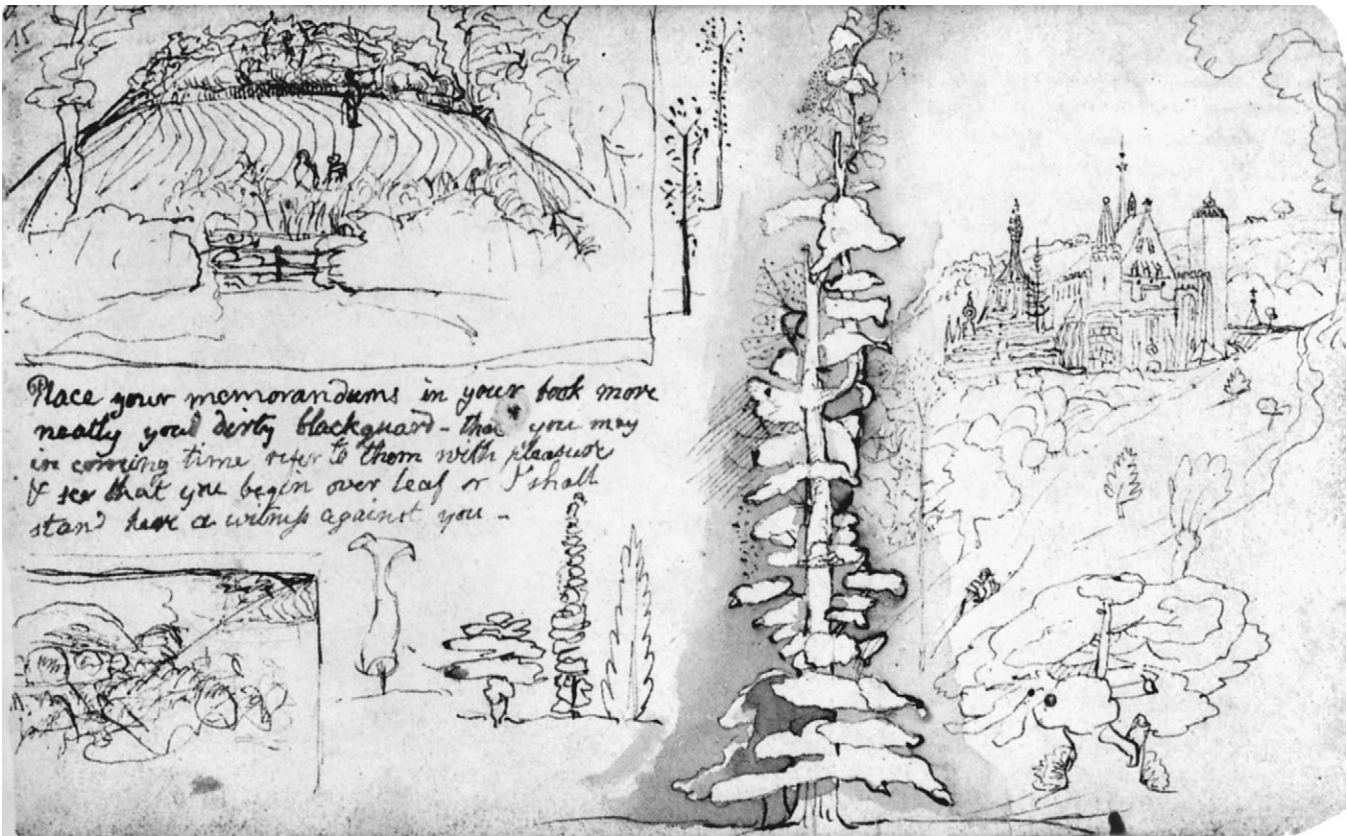 15
Place your memorandums in your book more
neatly you dirty blackguard - that you may
in coming time refer to them with pleasure
& see that you begin over leaf or I shall
stand here a witness against you -